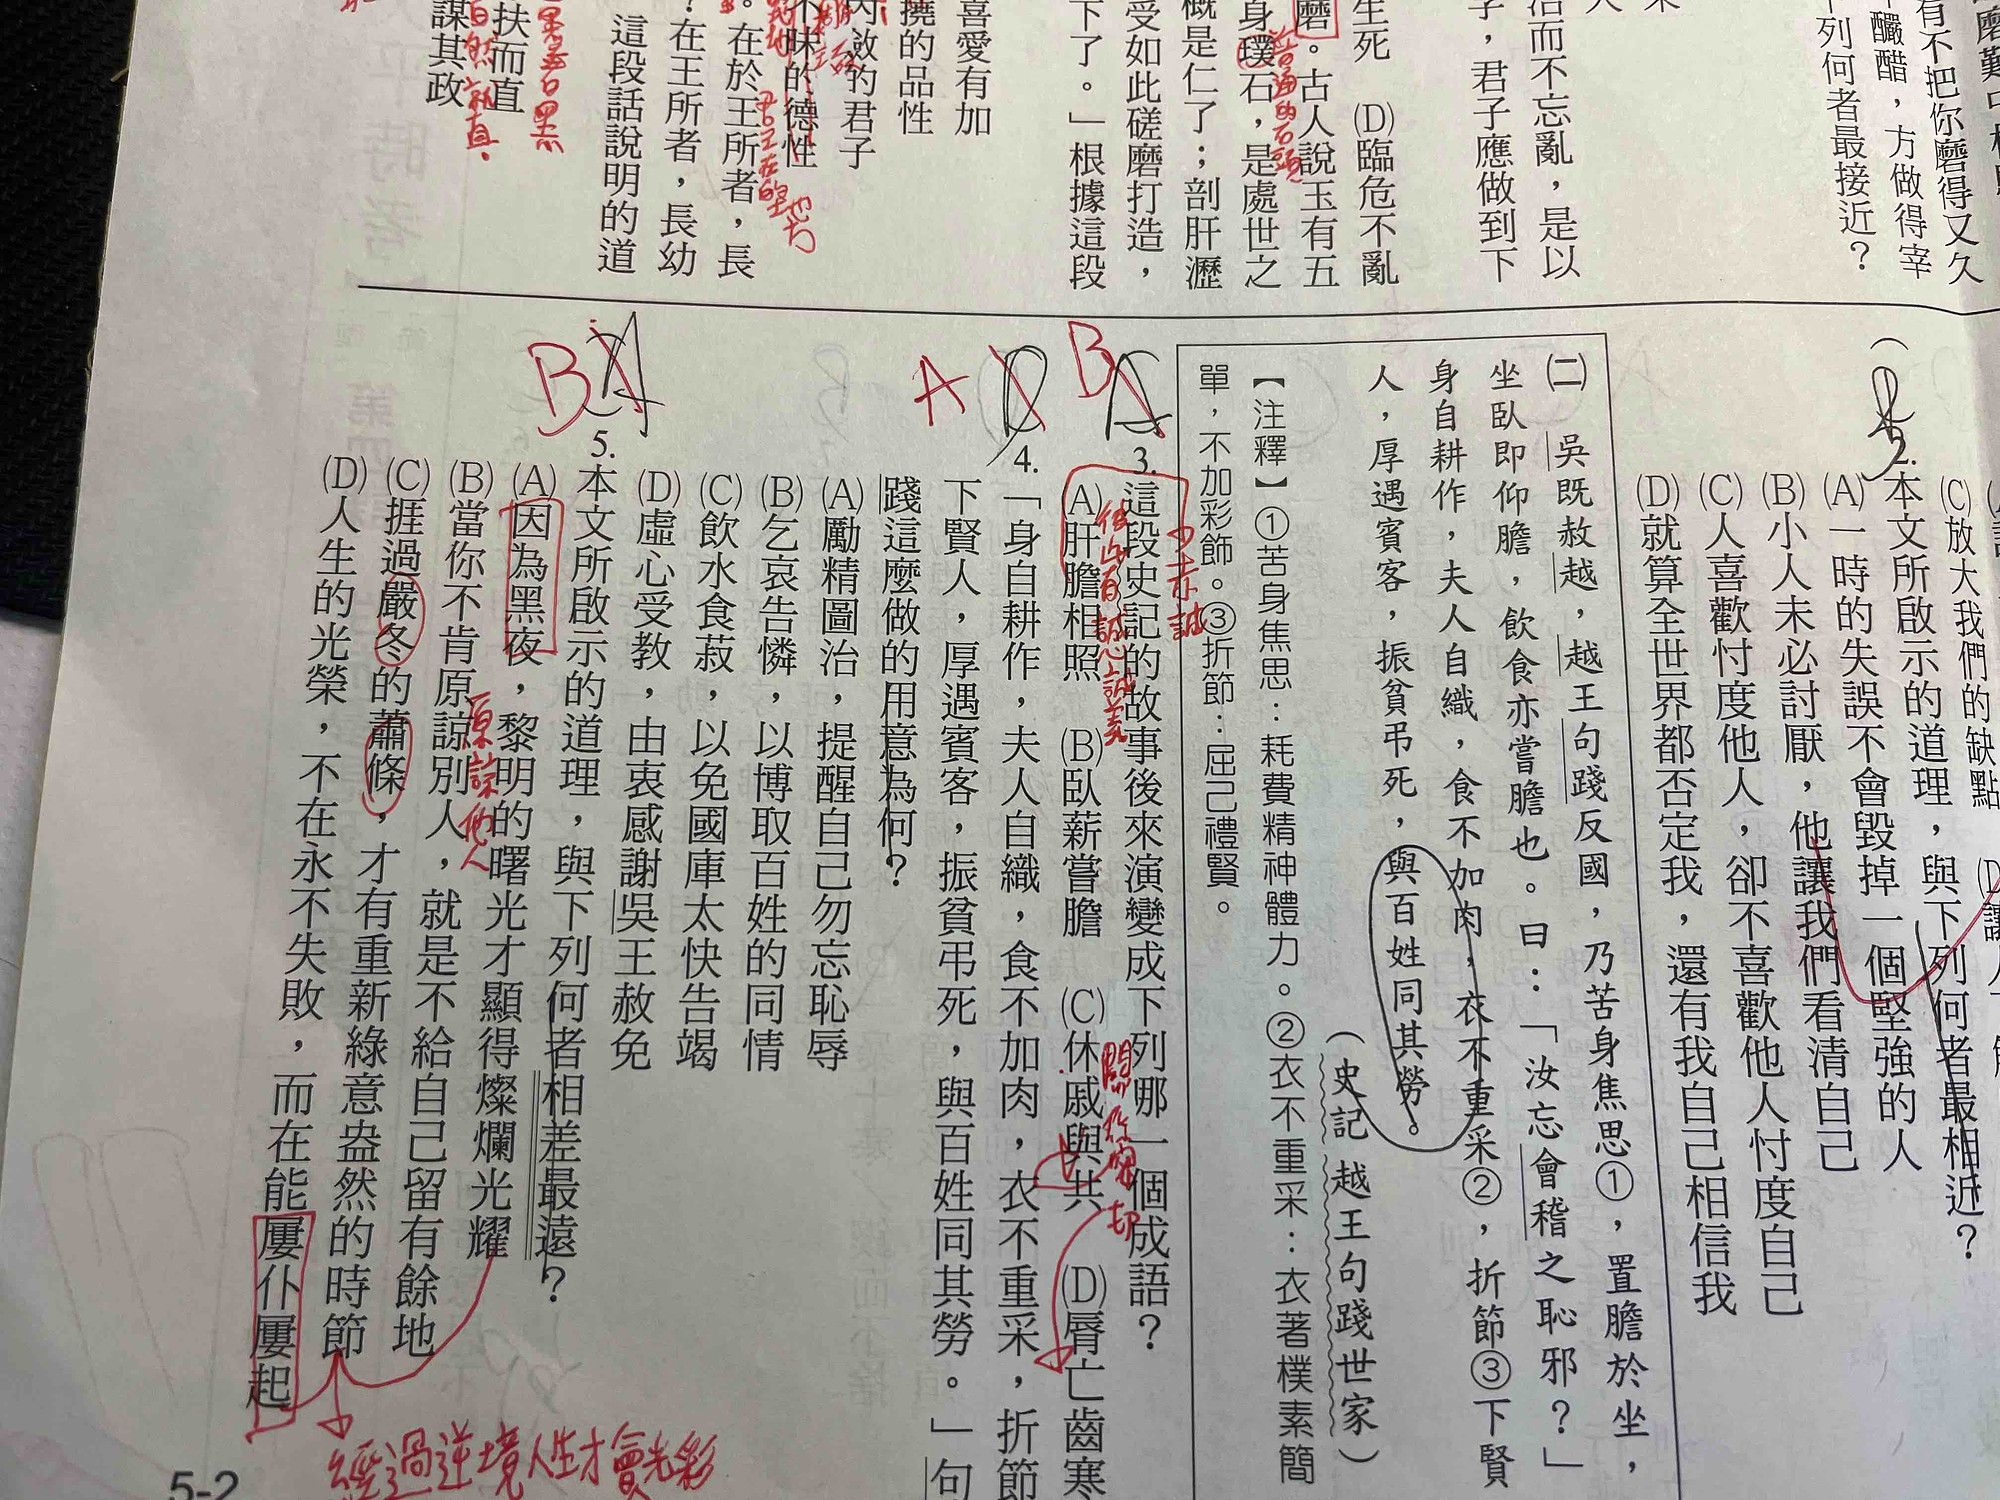 磨難中相
有不把你磨得又久
釅醋，方做得宰
列何者最接近？
治而不忘亂，是以
子，君子應做到下
生死　(D)臨危不亂
磨。古人說玉有五
普通的石頭
身璞石，是處世之
概是仁了；剖肝瀝
受如此磋磨打造，
下了。」根據這段
喜愛有加
撓的品性
內斂的君子
不昧的德性
。在於王所者，長
？在王所者，長幼
這段話說明的道
扶而直
自然就直。
謀其政
(C)放大我們的缺點
2.本文所啟示的道理，與下列何者最相近？
(A)一時的失誤不會毀掉一個堅強的人
(B)小人未必討厭，他讓我們看清自己
(C)人喜歡忖度他人，卻不喜歡他人忖度自己
(D)就算全世界都否定我，還有我自己相信我
㈡　吳既赦越，越王句踐反國，乃苦身焦思①，置膽於坐，
坐臥即仰膽，飲食亦嘗膽也。曰：「汝忘會稽之恥邪？」
身自耕作，夫人自織，食不加肉，衣不重采②，折節③下賢
人，厚遇賓客，振貧弔死，與百姓同其勞。
（史記　越王句踐世家）
【注釋】①苦身焦思：耗費精神體力。②衣不重采：衣著樸素簡
單，不加彩飾。③折節：屈己禮賢。
B
3.這段史記的故事後來演變成下列哪一個成語？
(A)肝膽相照　(B)臥薪嘗膽　(C)休戚與共　(D)脣亡齒寒
關係密切
A
4.「身自耕作，夫人自織，食不加肉，衣不重采，折節
下賢人，厚遇賓客，振貧弔死，與百姓同其勞。」句
踐這麼做的用意為何？
(A)勵精圖治，提醒自己勿忘恥辱
(B)乞哀告憐，以博取百姓的同情
(C)飲水食菽，以免國庫太快告竭
(D)虛心受教，由衷感謝吳王赦免
B
5.本文所啟示的道理，與下列何者相差最遠？
(A)因為黑夜，黎明的曙光才顯得燦爛光耀
原諒他人
(B)當你不肯原諒別人，就是不給自己留有餘地
(C)捱過嚴冬的蕭條，才有重新綠意盎然的時節
(D)人生的光榮，不在永不失敗，而在能屢仆屢起
經過逆境人生才會光彩
5-2